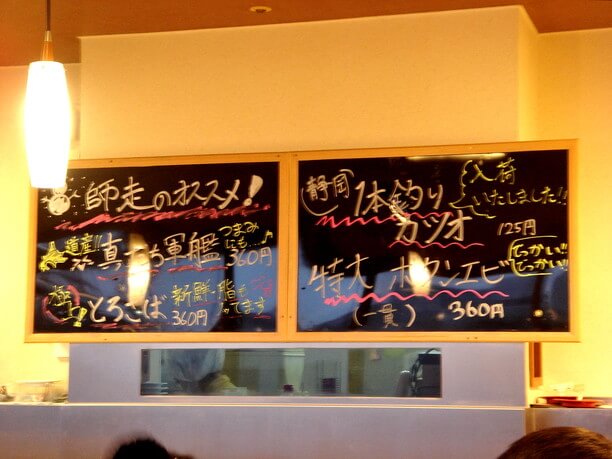 師走のオススメ!
道産!!
真たち軍艦
つまみにも…♪
360円
極上
とろさば
新鮮・脂も
ってます
360円
静岡
1本釣り
カツオ
入荷
いたしました!!
125円
特大 ボタンエビ
でっかい!!
でっかい!!
(一貫)
360円